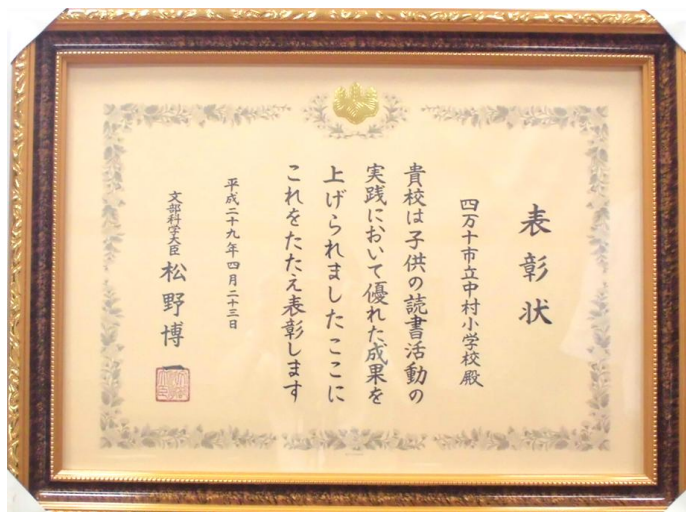 表彰状
四万十市立中村小学校殿
貴校は子供の読書活動の
実践において優れた成果を
上げられましたここに
これをたたえ表彰します
平成二十九年四月二十三日
文部科学大臣 松野博一